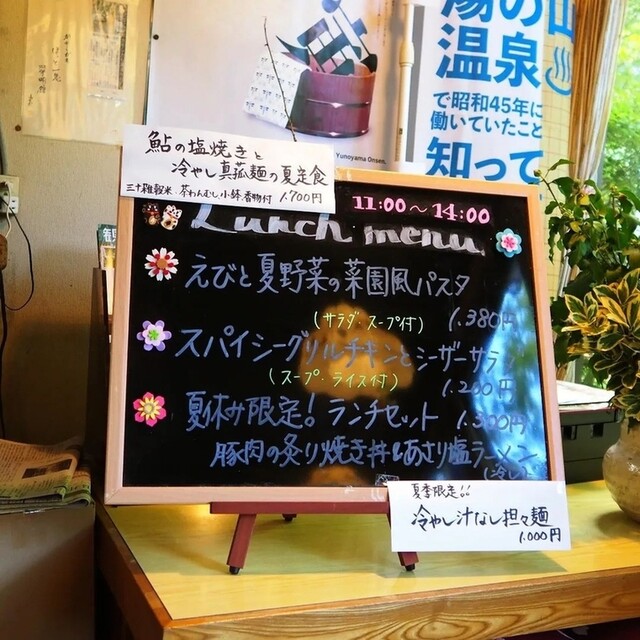 湯の山
温泉
で昭和45年に
働いていたこと
知って
Yunoyama Onsen,
鮎の塩焼きと
冷やし真菰麺の夏定食
三十雑穀米、茶わんむし、小鉢、香物付 1,700円
11:00～14:00
Lunch menu
えびと夏野菜の菜園風パスタ
(サラダ・スープ付) 1,380円
スパイシーグリルチキンとシーザーサラダ
(スープ・ライス付) 1,200円
夏休み限定! ランチセット 1,300円
豚肉の炙り焼き丼&あさり塩ラーメン
夏季限定!!
冷やし汁なし担々麺
1,000円